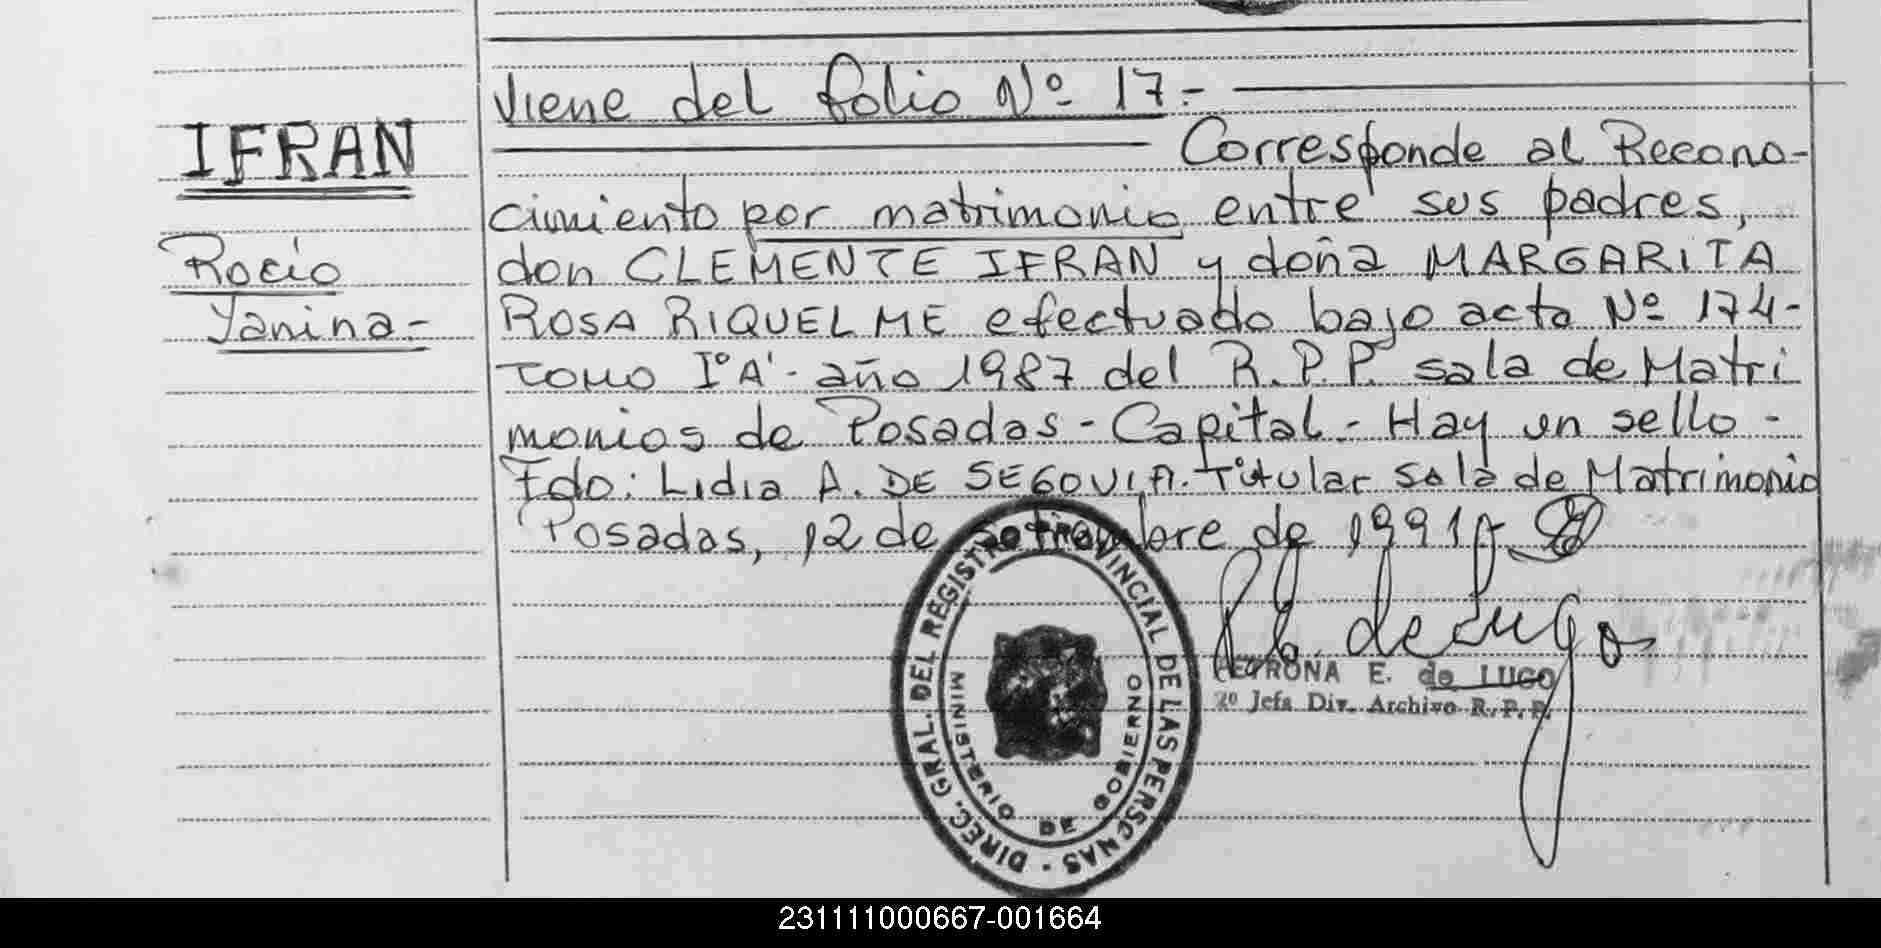 Viene del folio Nº 17.-
IFRAN
Corresponde al Recono-
cimiento por matrimonio entre sus padres,
Rocio
don CLEMENTE IFRAN y doña MARGARITA
Yanina-
ROSA RIQUELME efectuado bajo acta Nº 174-
TOMO Iº A' - año 1987 del R.P.P. sala de Matri
monios de Posadas - Capital - Hay un sello -
Fdo: Lidia A. DE SEGOVIA. Titular Sala de Matrimonio
Posadas, 12 de Setiembre de 1991
de Lugo
PETRONA E. de LUGO
2º Jefa Div. Archivo R.P.P.
DIREC. GRAL. DEL REGISTRO PROVINCIAL DE LAS PERSONAS
MINISTERIO DE GOBIERNO
231111000667-001664